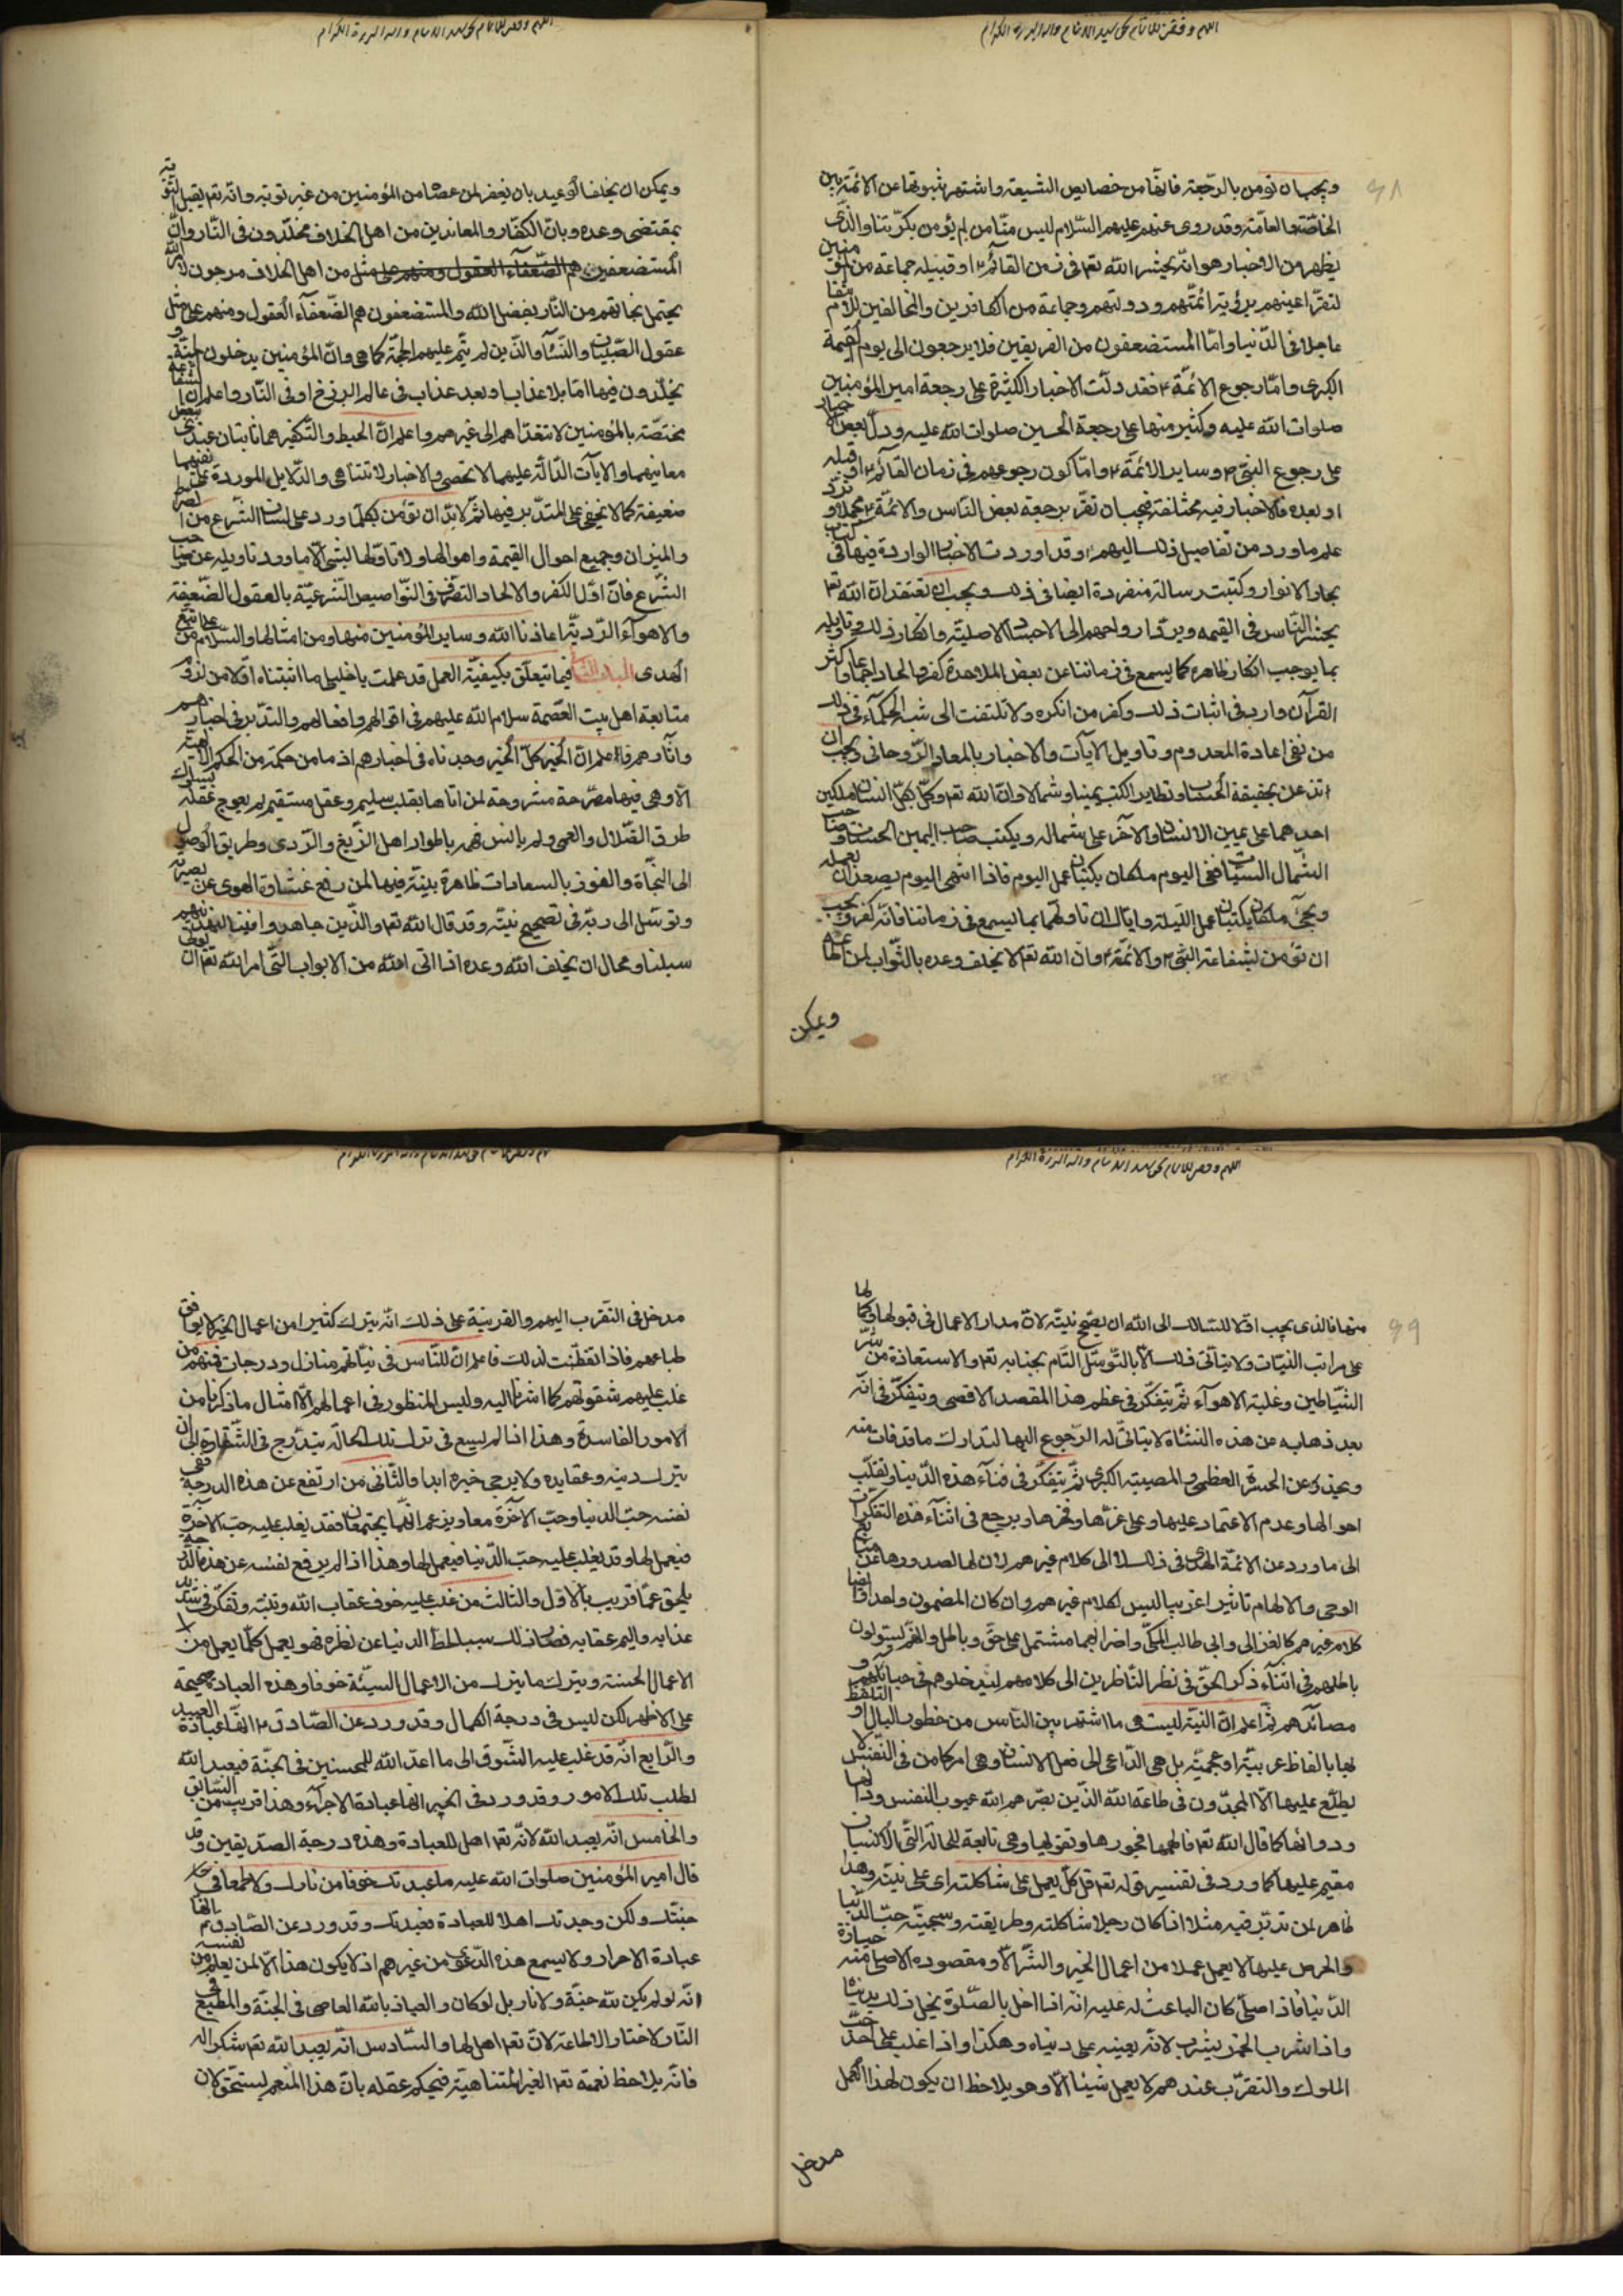 اللهم وفقنا للاتمام بحق سيد الانام واله البررة الكرام
ويجب ان تؤمن بالرجعة فانها من خصايص الشيعة واشتهر ثبوتها عن الائمة بين
الخاصة والعامة وقد روى عنهم عليهم السلام ليس منا من لم يؤمن بكرتنا والذى
يظهر من الاخبار هو انه يحشر الله تعا فى زمن القائم ع او قبيله جماعة من المؤمنين
لتقر اعينهم برؤية ائمتهم ودولتهم وجماعة من الكافرين والمخالفين للانتقام
عاجلا فى الدنيا واما المستضعفون من الفريقين فلا يرجعون الى يوم القيمة
الكبرى واما رجوع الائمة ع فقد دلت الاخبار الكثيرة على رجعة امير المؤمنين
صلوات الله عليه وكثير منها على رجعة الحسين صلوات الله عليه ودل بعض الاخبار
على رجوع النبى ص وساير الائمة ع واما كون رجوعهم فى زمان القائم ع او قبله
او بعده فالاخبار فيه مختلفة فيجب ان تقر برجعة بعض الناس والائمة ع مجملا وترد
علم ما ورد من تفاصيل ذلك اليهم ع وقد اوردت الاخبار الواردة فيها فى كتاب
بحار الانوار وكتبت رسالة منفردة ايضا فى ذلك ويجب ان تعتقد ان الله تعا
يحشر الناس فى القيمه ويرد ارواحهم الى الاجساد الاصلية وانكار ذلك وتاويله
بما يوجب انكار ظاهره كما يسمع فى زماننا عن بعض الملاحدة كفر والحاد اجماعا واكثر
القرآن وارد فى اثبات ذلك وكفر من انكره ولا تلتفت الى شبه الحكماء فى ذلك
من نفى اعادة المعدوم وتاويل الآيات والاخبار بالمعاد الروحانى ويجب ان
تذعن بحقيقة الحساب وتطاير الكتب يمينا وشمالا وان الله تعا وكل بكل انسان ملكين
احدهما على يمين الانسان والآخر على شماله ويكتب صاحب اليمين الحسنات وصاحب
الشمال السيئات ففى اليوم ملكان يكتبان عمل اليوم فاذا انتهى اليوم يصعدان بعمله
ويجئ ملكان يكتبان عمل الليلة واياك ان تاولهما بما يسمع فى زماننا فانه كفر ويجب
ان تؤمن بشفاعة النبى ص والائمة ع وان الله تعا لا يخلف وعده بالثواب لمن اطاعه
ويمكن
اللهم وفقنا للاتمام بحق سيد الانام واله البررة الكرام
ويمكن ان يخلف الوعيد بان يغفر لمن عصا من المؤمنين من غير توبة وانه تعا يقبل التوبة
بمقتضى وعده وبان الكفار والمعاندين من اهل الخلاف مخلدون فى النار وان
المستضعفين هم الضعفاء العقول ومنهم على مثل من اهل الخلاف مرجون لامر الله
يحتمل نجاتهم من النار بفضل الله والمستضعفون هم الضعفآء العقول ومنهم على مثل
عقول الصبيان والنسآء والذين لم يتم عليهم الحجة كما هى وان المؤمنين يدخلون الجنة و
يخلدون فيها اما بلا عذاب او بعد عذاب فى عالم البرزخ او فى النار واعلم ان الشفاعة
مختصة بالمؤمنين لا تتعداهم الى غيرهم واعلم ان الحبط والتكفير هما ثابتان عندى ببعض
معانيهما والآيات الدالة عليهما لا تحصى والاخبار لا تتناهى والدلايل الموردة على نفيهما
ضعيفة كما لا تخفى على المتدبر فيها ثم لا بد ان تؤمن بكلما ورد على لسان الشرع من الصراط
والميزان وجميع احوال القيمة واهوالها ولا تاولها بشئ الا ما ورد تاويله عن صاحب
الشرع فان اول الكفر والالحاد التصرف فى النواميس الشرعية بالعقول الضعيفة
والاهوآء الردية اعاذنا الله وساير المؤمنين منها ومن امثالها والسلام على من اتبع
الهدى الباب الثانى فيما يتعلق بكيفية العمل قد علمت يا خليلى ما اثبتناه اولا من لزوم
متابعة اهل بيت العصمة سلام الله عليهم فى اقوالهم وافعالهم والتدبر فى اخبارهم
وآثارهم فاعلم ان الخير كل الخير وجدناه فى اخبارهم اذ ما من حكمة من الحكم الالهية
الا وهى فيها مصرحة مشروحة لمن اتاها بقلب سليم وعقل مستقيم لم يعوج عقله بسلوك
طرق الضلال والعمى ولم يانس فهمه باطوار اهل الزيغ والردى وطريق الوصول
الى النجاة والفوز بالسعادات ظاهرة بينة فيها لمن رفع غشاوة الهوى عن بصيرته
وتوسل الى ربه فى تصحيح نيته وقد قال الله تعا والذين جاهدوا فينا لنهدينهم
سبلنا ومحال ان يخلف الله وعده اذا اتى الله من الابواب التى امر الله تعا ان يؤتى
اللهم وفقنا للاتمام بحق سيد الانام واله البررة الكرام
منها فالذى يجب اولا للسالك الى الله ان يصحح نيته لان مدار الاعمال فى قبولها وكمالها
على مراتب النيات ولا يتاتى ذلك الا بالتوسل التام بجنابه تعا والاستعاذة من شر
الشياطين وغلبة الاهوآء ثم يتفكر فى عظم هذا المقصد الاقصى ويتفكر فى انه
بعد ذهابه عن هذه النشاة لا يتاتى له الرجوع اليها لتدارك ما قد فات منه
ويحذر عن الحسرة العظمى والمصيبة الكبرى ثم يتفكر فى فنآء هذه الدنيا وتقلب
احوالها وعدم الاعتماد عليها وعلى عزها وفخرها ويرجع فى اثنآء هذه التفكرات
الى ما ورد عن الائمة الهدى فى ذلك لا الى كلام غيرهم لان لها لصدورها عن منابع
الوحى والالهام تاثيرا غريبا ليس لكلام غيرهم وان كان المضمون واحدا وايضا
كلام غيرهم كالغزالى وابى طالب المكى واضرابهما مشتمل على حق وباطل وانهم يسولون
باطلهم فى اثنآء ذكر الحق فى نظر الناظرين الى كلامهم ليدخلوهم فى حبائلهم و
مصائدهم ثم اعلم ان النية ليست هى ما اشتهر بين الناس من خطور البال او التلفظ
بها بالفاظ عربية او عجمية بل هى الداعى الى فعل الانسان وهى امر كامن فى النفس لا
يطلع عليها الا المجدون فى طاعة الله الذين بصرهم الله عيوب النفس ودائها
ودوائها كما قال الله تعا فالهمها فجورها وتقويها وهى تابعة للحالة التى الانسان
مقيم عليها كما ورد فى تفسير قوله تعا قل كل يعمل على شاكلته اى على نيته وهذا
ظاهر لمن تدبر فيه مثلا اذا كان رجلا شاكلته وطريقته وسجيته حب الدنيا
والحرص عليها لا يعمل عملا من اعمال الخير والشر الا ومقصوده الاصلى منه حيازة
الدنيا فاذا صلى كان الباعث له عليه انه اذا اخل بالصلوة يخل ذلك بدنياه
واذا شرب الخمر يشرب لانه يعينه على دنياه وهكذا واذا غلب على احد حب
الملوك والتقرب عندهم لا يعمل شيئا الا وهو يلاحظ ان يكون لهذا العمل
مدخل
مدخل فى التقرب اليهم والقرينة على ذلك انه يترك كثيرا من اعمال الخير لا يوافق
طباعهم فاذا تفطنت لذلك فاعلم ان للناس فى نياتهم منازل ودرجات فمنهم من
غلب عليهم شقوتهم كما اشرنا اليه وليس المنظور فى اعمالهم الا امثال ما ذكرنا من
الامور الفاسدة وهذا اذا لم يسع فى ترك تلك الحالة يتدرج فى الشقاوة الى ان
يترك دينه وعقايده ولا يرجى خيره ابدا والثانى من ارتفع عن هذه الدرجة ففى
نفسه حب الدنيا وحب الآخرة معا ويزعم انهما يجتمعان فقد يغلب عليه حب الآخرة
فيعمل لها وقد يغلب عليه حب الدنيا فيعمل لها وهذا اذا لم يرفع نفسه عن هذه الدرجة
يلحق عما قريب بالاول والثالث من غلب عليه خوف عقاب الله وتنبه وتفكر فى شديد
عذابه واليم عقابه فصار ذلك سببا لحط الدنيا عن نظره فهو يعمل كلما يعمل من
الاعمال الحسنة ويترك ما يترك من الاعمال السيئة خوفا وهذه العبادة صحيحة
على الاظهر لكن ليس فى درجة الكمال وقد ورد عن الصادق ع انها عبادة العبيد
والرابع انه قد غلب عليه الشوق الى ما اعد الله للمحسنين فى الجنة فيعبد الله
لطلب تلك الامور وقد ورد فى الخبر انها عبادة الاجرآء وهذا قريب من السابق
والخامس انه يعبد الله لانه تعا اهل للعبادة وهذه درجة الصديقين وقد
قال امير المؤمنين صلوات الله عليه ما عبدتك خوفا من نارك ولا طمعا فى
جنتك ولكن وجدتك اهلا للعبادة فعبدتك وقد ورد عن الصادق ع انها
عبادة الاحرار ولا يسمع هذه الدعوى من غيرهم اذ لا يكون هذا الا لمن يعلم من نفسه
انه لو لم يكن لله جنة ولا نار بل لو كان والعياذ بالله العاصى فى الجنة والمطيع فى
النار لاختار الاطاعة لانه تعا اهل لها والسادس انه يعبد الله تعا شكرا له
فانه يلاحظ نعمه تعا الغير المتناهية فيحكم عقله بان هذا المنعم يستحق لان